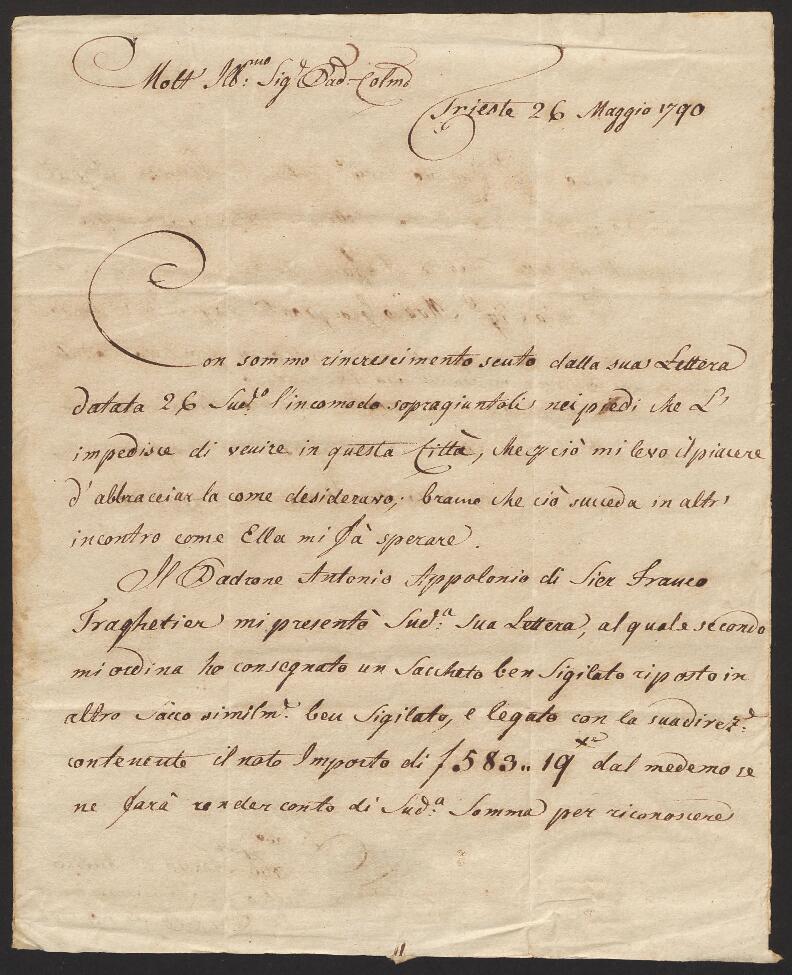 Molt' Ill:mo Sigr Pad: Colmo
Trieste 26 Maggio 1790
Con sommo rincrescimento sento dalla sua Lettera
datata 26 Sud:o l'incomodo sopragiuntoli nei piedi che L'
impedisce di venire in questa Città, che p ciò mi levo il piacere
d'abbracciar la come desideravo; bramo che ciò succeda in altr'
incontro come Ella mi fà sperare.
Il Padrone Antonio Appolonio di Sier Franco
Traghetier mi presentò Sud:a Sua Lettera, al quale secondo
mi ordina ho consegnato un Saccheto ben Sigilato riposto in
altro Sacco similm: ben Sigilato, e legato con la sua direz:
contenente il noto Importo di f 583.. 19 xr dal medemo se
ne farà render conto di Sud:a Somma per riconoscere